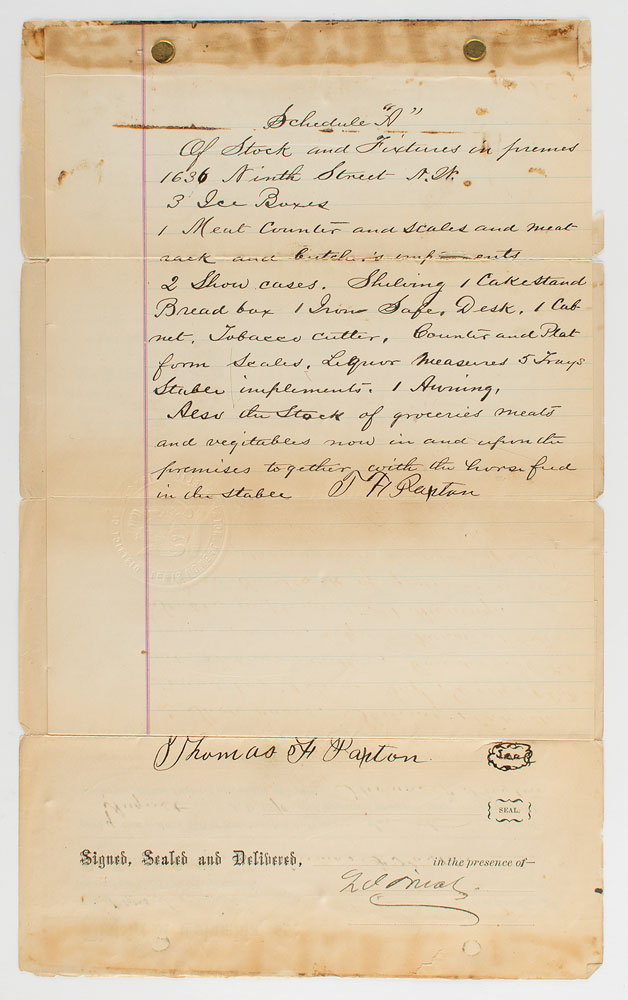 Schedule "A"
Of Stock and Fixtures in premes
1636 Ninth Street N.W.
3 Ice Boxes
1 Meat Counter and scales and meat
rack and butcher's
2 Show cases. Shelving 1 Cake Stand
Bread box 1 Iron Safe, Desk, 1 Cab
net, Tobacco cutter, Counter and Plat
form scales, Liquor Measures 5 Trays
Stable impliments. 1 Awning,
Also the Stock of groceries meats
and vegitables now in and upon the
premises together with the horse feed
in the stable T H Paxton
Thomas H Paxton Seal
SEAL.
Signed, Sealed and Delivered, in the presence of—